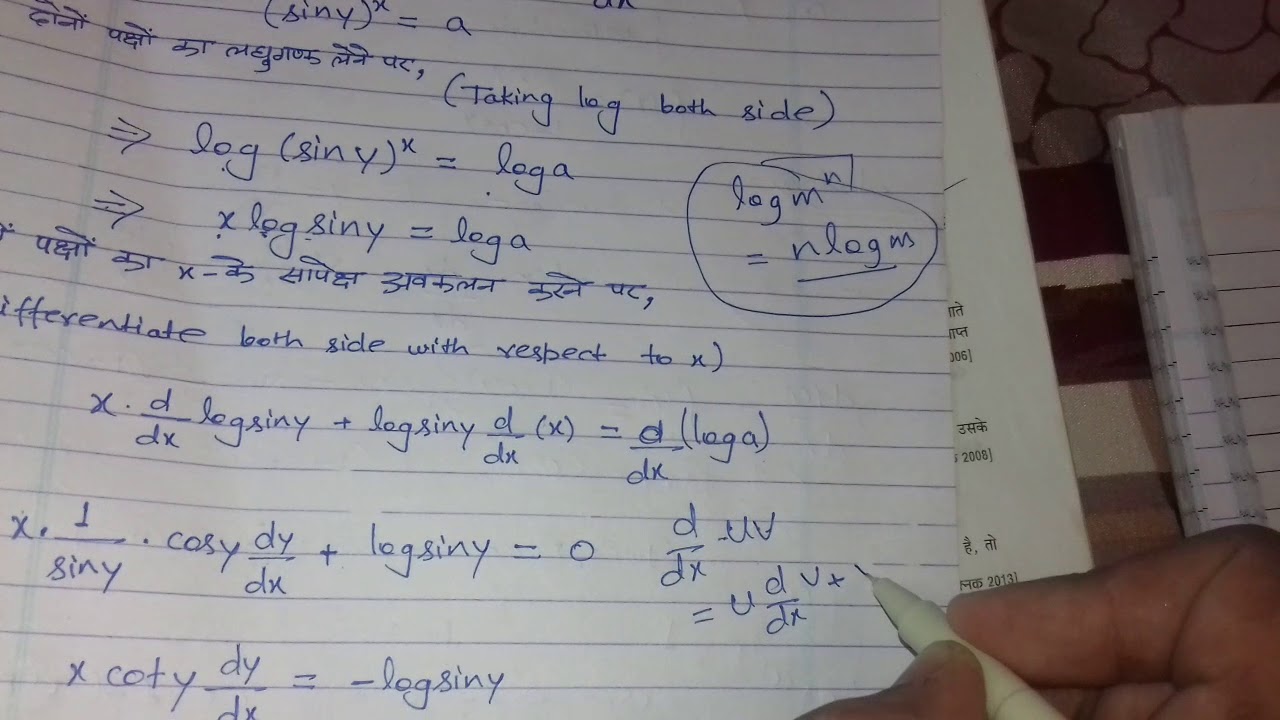 (siny)^x = a
दोनों पक्षों का लघुगणक लेने पर,
(Taking log both side)
⇒ log (siny)^x = loga
⇒ x logsiny = loga
logm^n
= nlogm
पक्षों का x-के सापेक्ष अवकलन करने पर,
ifferentiate both side with respect to x)
x · d/dx logsiny + logsiny d/dx (x) = d/dx (loga)
x · 1/siny · cosy dy/dx + logsiny = 0
d/dx UV
= U d/dx V +
x coty dy/dx = -logsiny
006]
उसके
2008]
है, तो
2013]